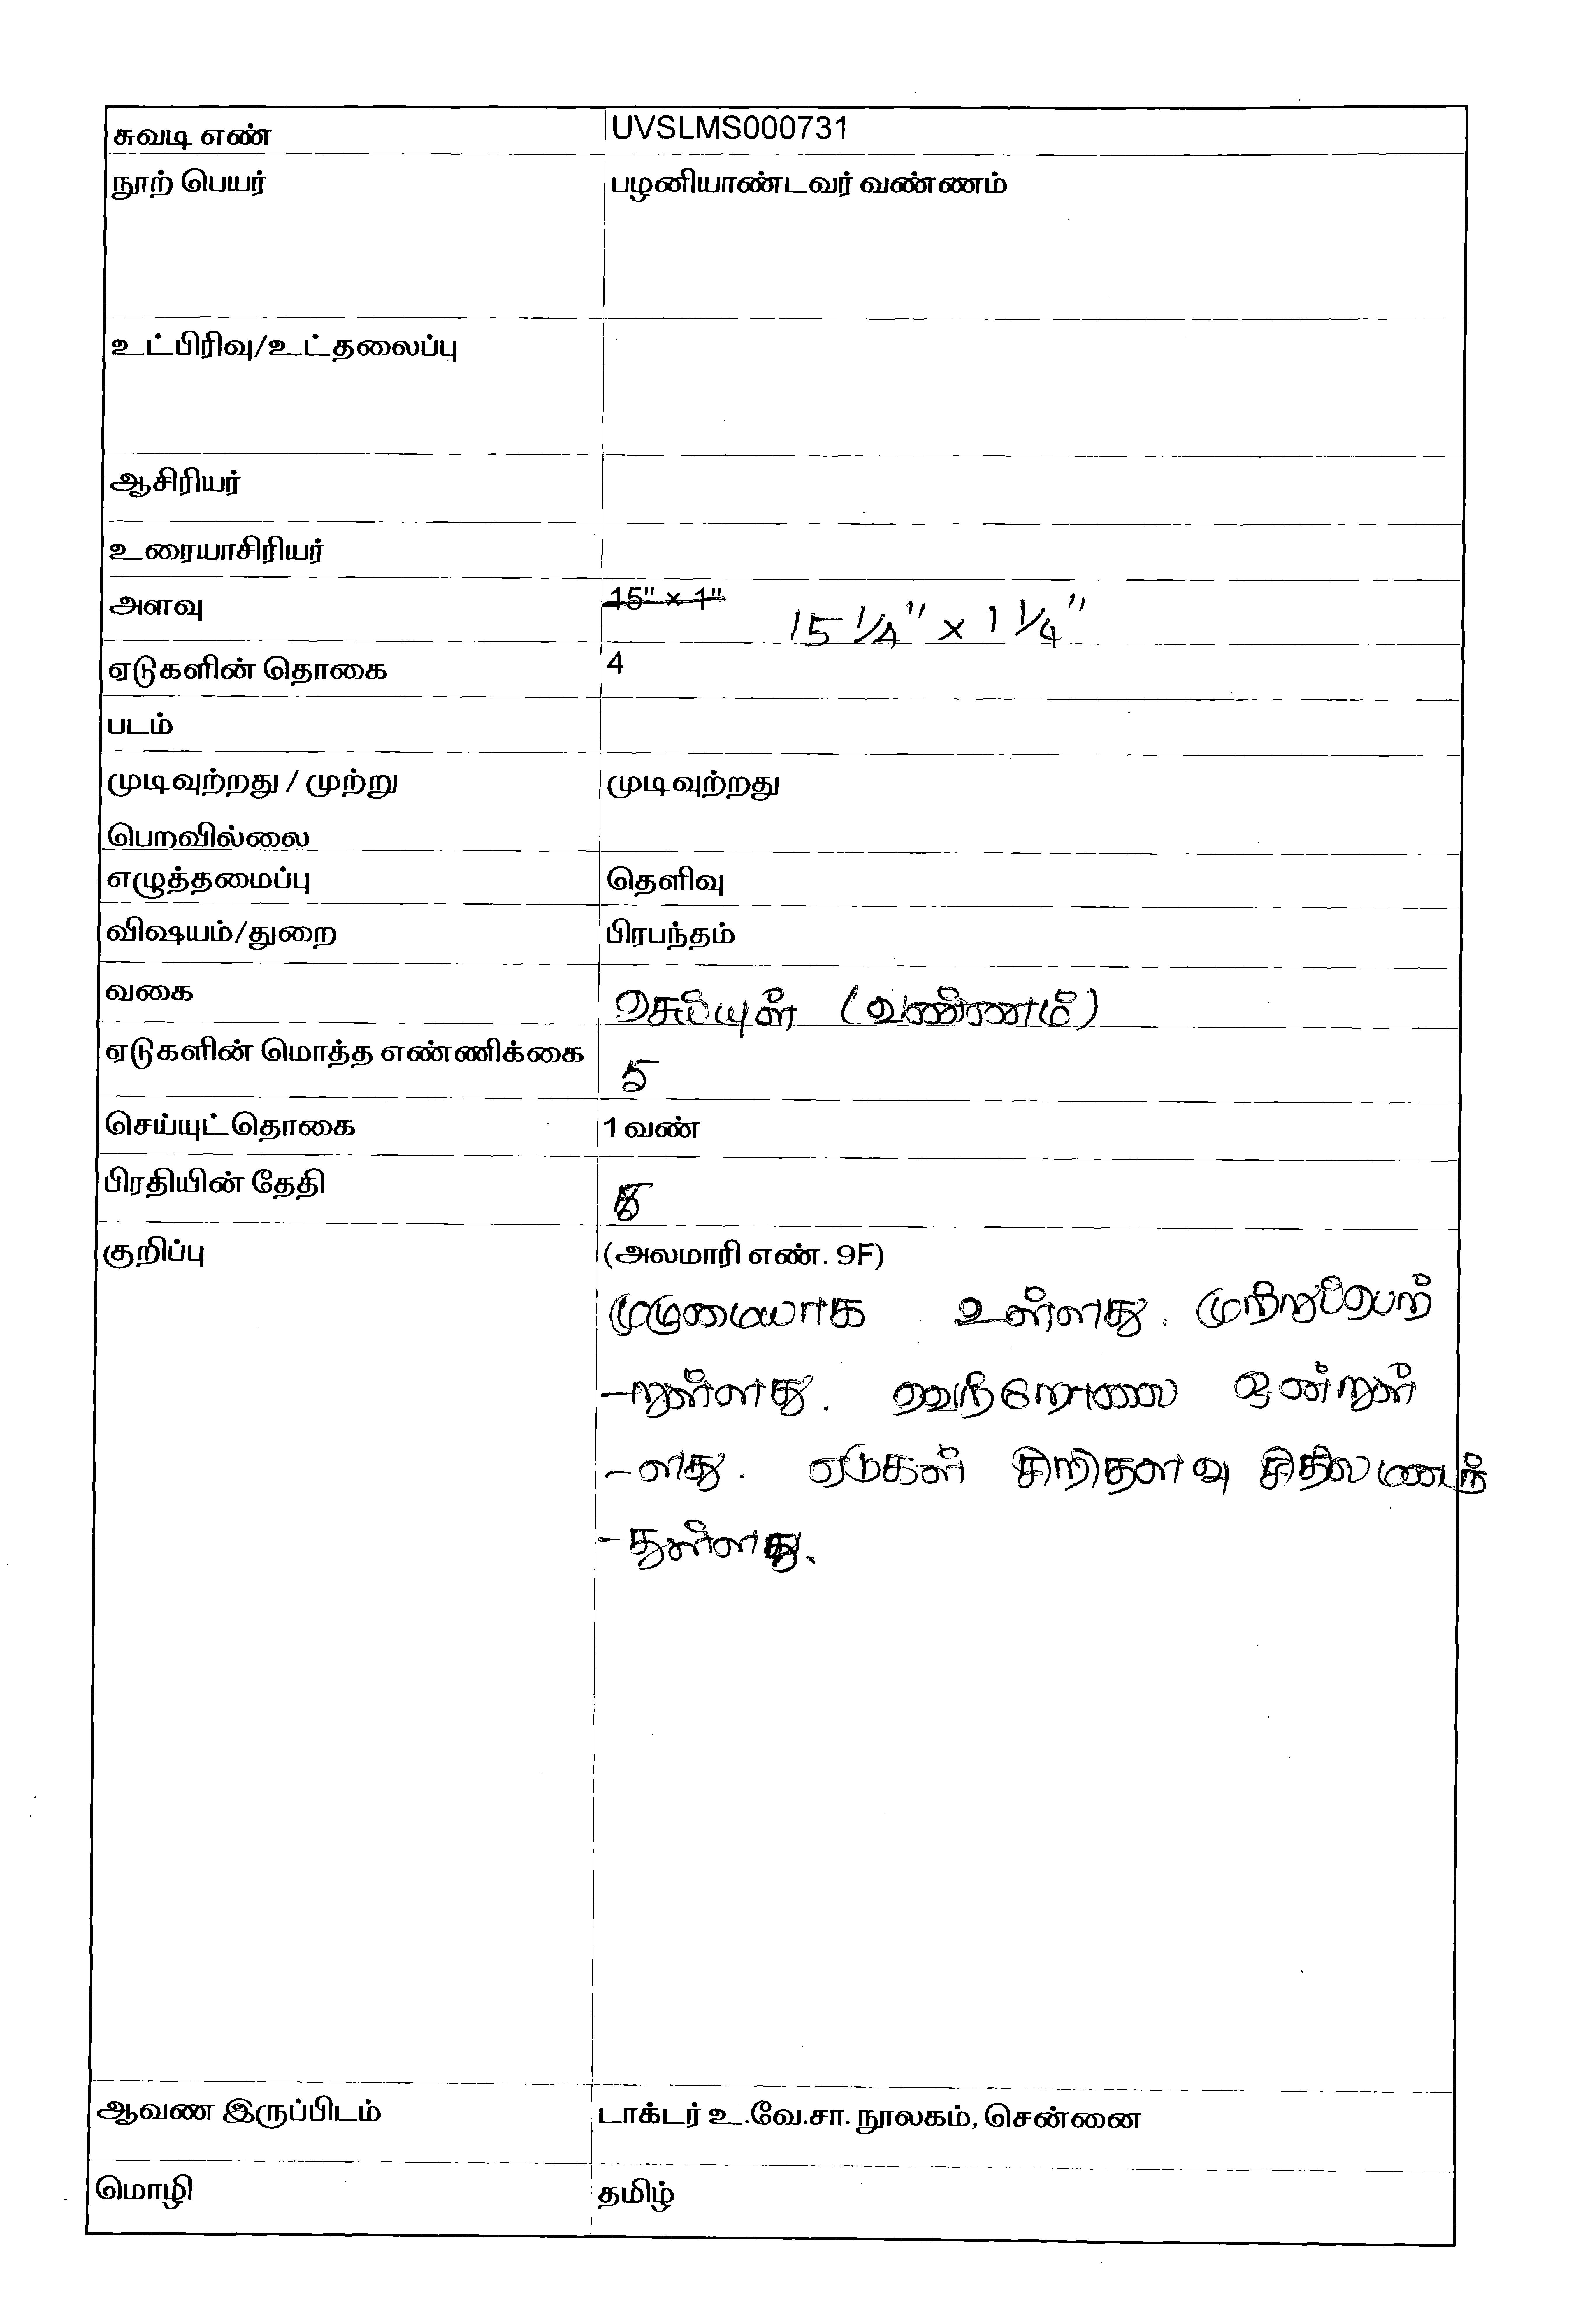 சுவடி எண் UVSLMS000731
நூற் பெயர் பழனியாண்டவர் வண்ணம்
உட்பிரிவு/உட்தலைப்பு
ஆசிரியர்
உரையாசிரியர்
அளவு 15" × 1" 15 1/4" × 1 1/4"
ஏடுகளின் தொகை 4
படம்
முடிவுற்றது / முற்று முடிவுற்றது
பெறவில்லை
எழுத்தமைப்பு தெளிவு
விஷயம்/துறை பிரபந்தம்
வகை செய்யுள் (வண்ணம்)
ஏடுகளின் மொத்த எண்ணிக்கை 5
செய்யுட்தொகை 1 வண்
பிரதியின் தேதி
குறிப்பு (அலமாரி எண். 9F)
முழுமையாக உள்ளது. முற்றுப்பெற்
-றுள்ளது. வெற்றோலை ஒன்றுள்
-ளது. ஏடுகள் சிறிதளவு சிதிலமடைந்
-துள்ளது.
ஆவண இருப்பிடம் டாக்டர் உ.வே.சா. நூலகம், சென்னை
மொழி தமிழ்